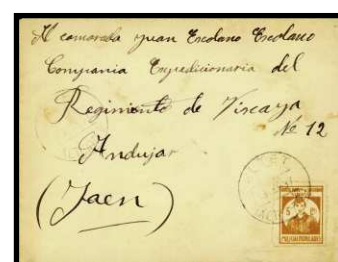 Al comarada Juan Escolano Escolano
Compania Expedicionaria del
Regimiento de Viscaya
Nº 12
Andujar
(Jaen)